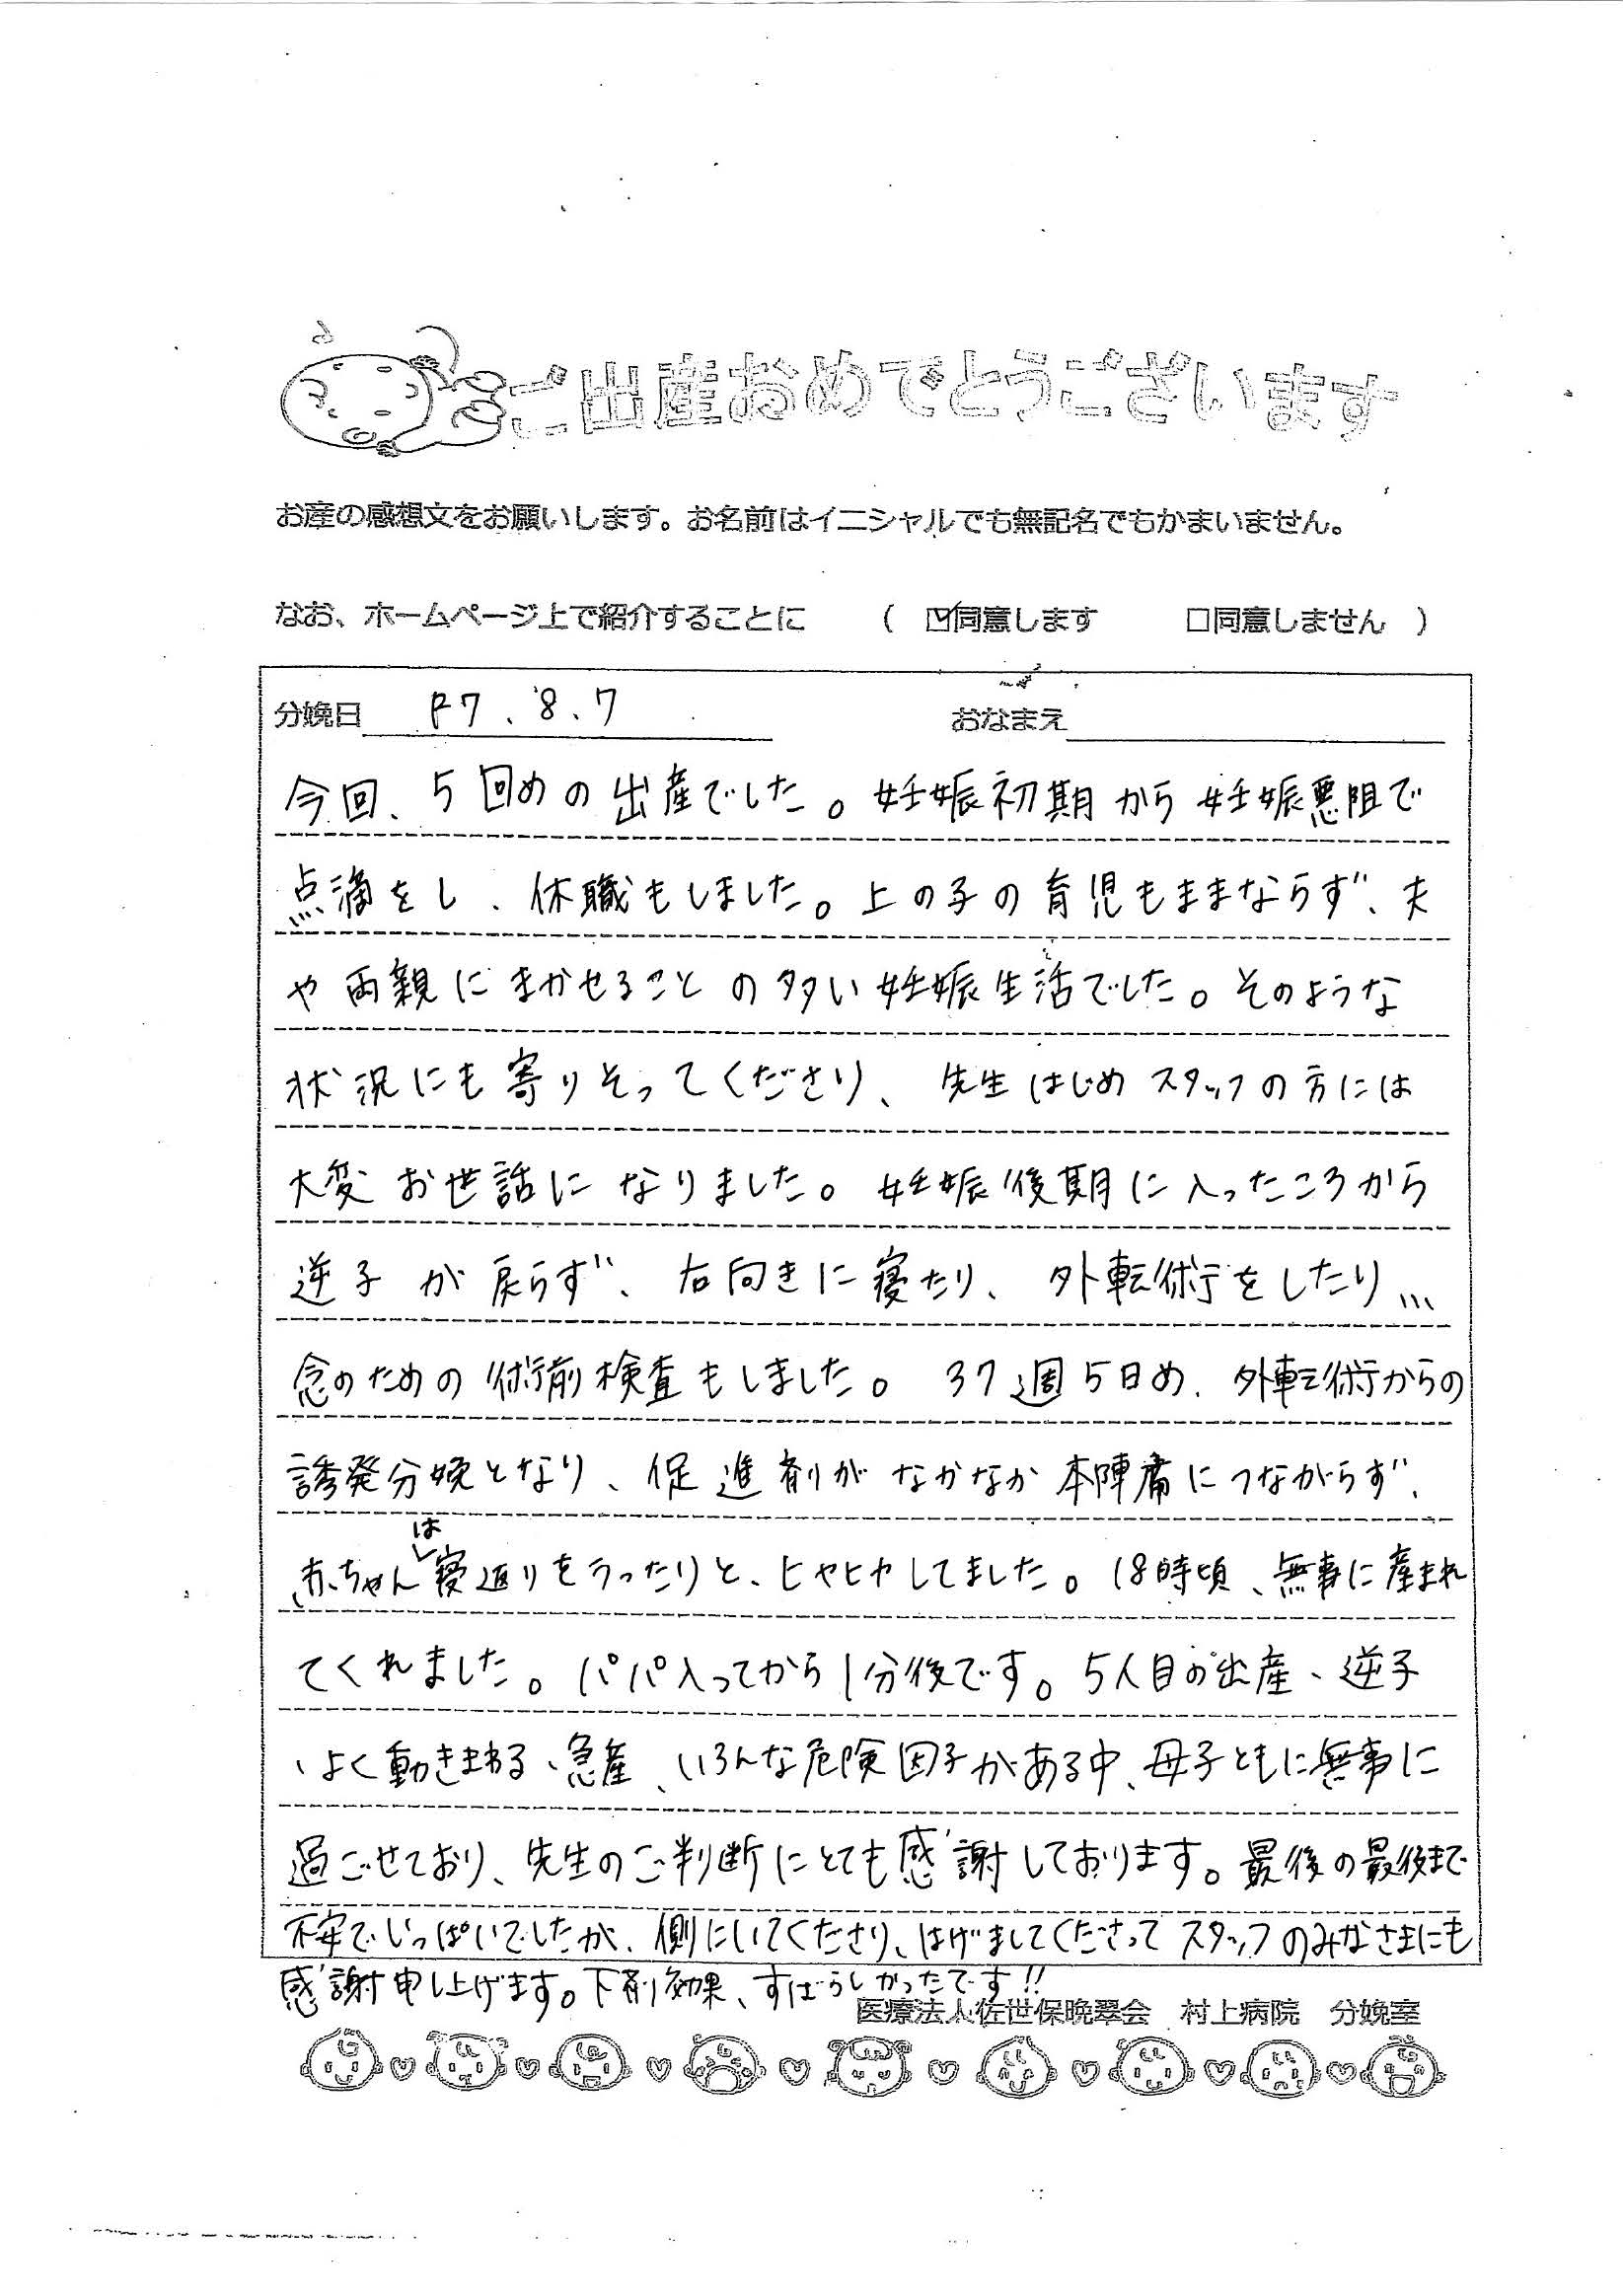 ご出産おめでとうございます
お産の感想文をお願いします。お名前はイニシャルでも無記名でもかまいません。
なお、ホームページ上で紹介することに ( ☑同意します □同意しません )
分娩日 R7.8.7 おなまえ
今回、5回めの出産でした。妊娠初期から妊娠悪阻で
点滴をし、休職もしました。上の子の育児もままならず、夫
や両親にまかせることの多い妊娠生活でした。そのような
状況にも寄りそってくださり、先生はじめスタッフの方には
大変お世話になりました。妊娠後期に入ったころから
逆子が戻らず、右向きに寝たり、外転術をしたり…
念のための術前検査もしました。37週5日め、外転術からの
誘発分娩となり、促進剤がなかなか本陣痛につながらず、
赤ちゃんは寝返りをうったりと、ヒヤヒヤしてました。18時頃、無事に産まれ
てくれました。パパ入ってから1分後です。5人目の出産、逆子
、よく動きまわる、急産、いろんな危険因子がある中、母子ともに無事に
過ごせており、先生のご判断にとても感謝しております。最後の最後まで
不安でいっぱいでしたが、側にいてくださり、はげましてくださってスタッフのみなさまにも
感謝申し上げます。下剤効果、すばらしかったです!!
医療法人佐世保晩翠会 村上病院 分娩室